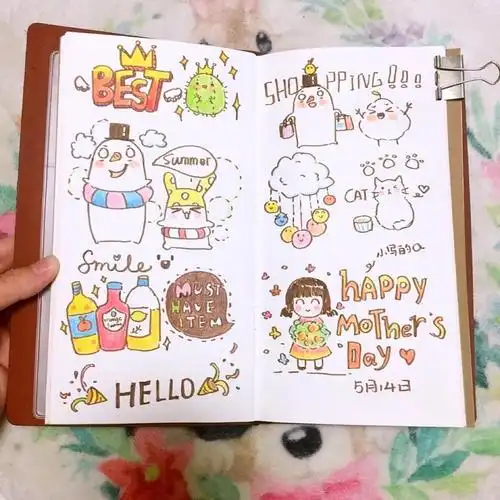 BEST
Summer
Smile
MUST
HAVE
ITEM
HELLO
SHOPPING!!!
CAT
小写的a
HAPPY
MOTHER'S
DAY
5月14日